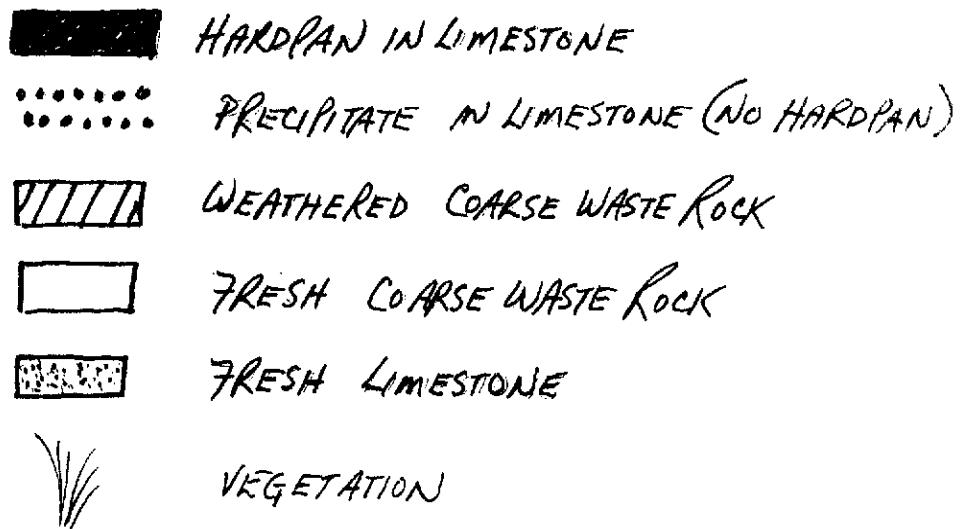 HARDPAN IN LIMESTONE
PRECIPITATE IN LIMESTONE (NO HARDPAN)
WEATHERED COARSE WASTE ROCK
FRESH COARSE WASTE ROCK
FRESH LIMESTONE
VEGETATION